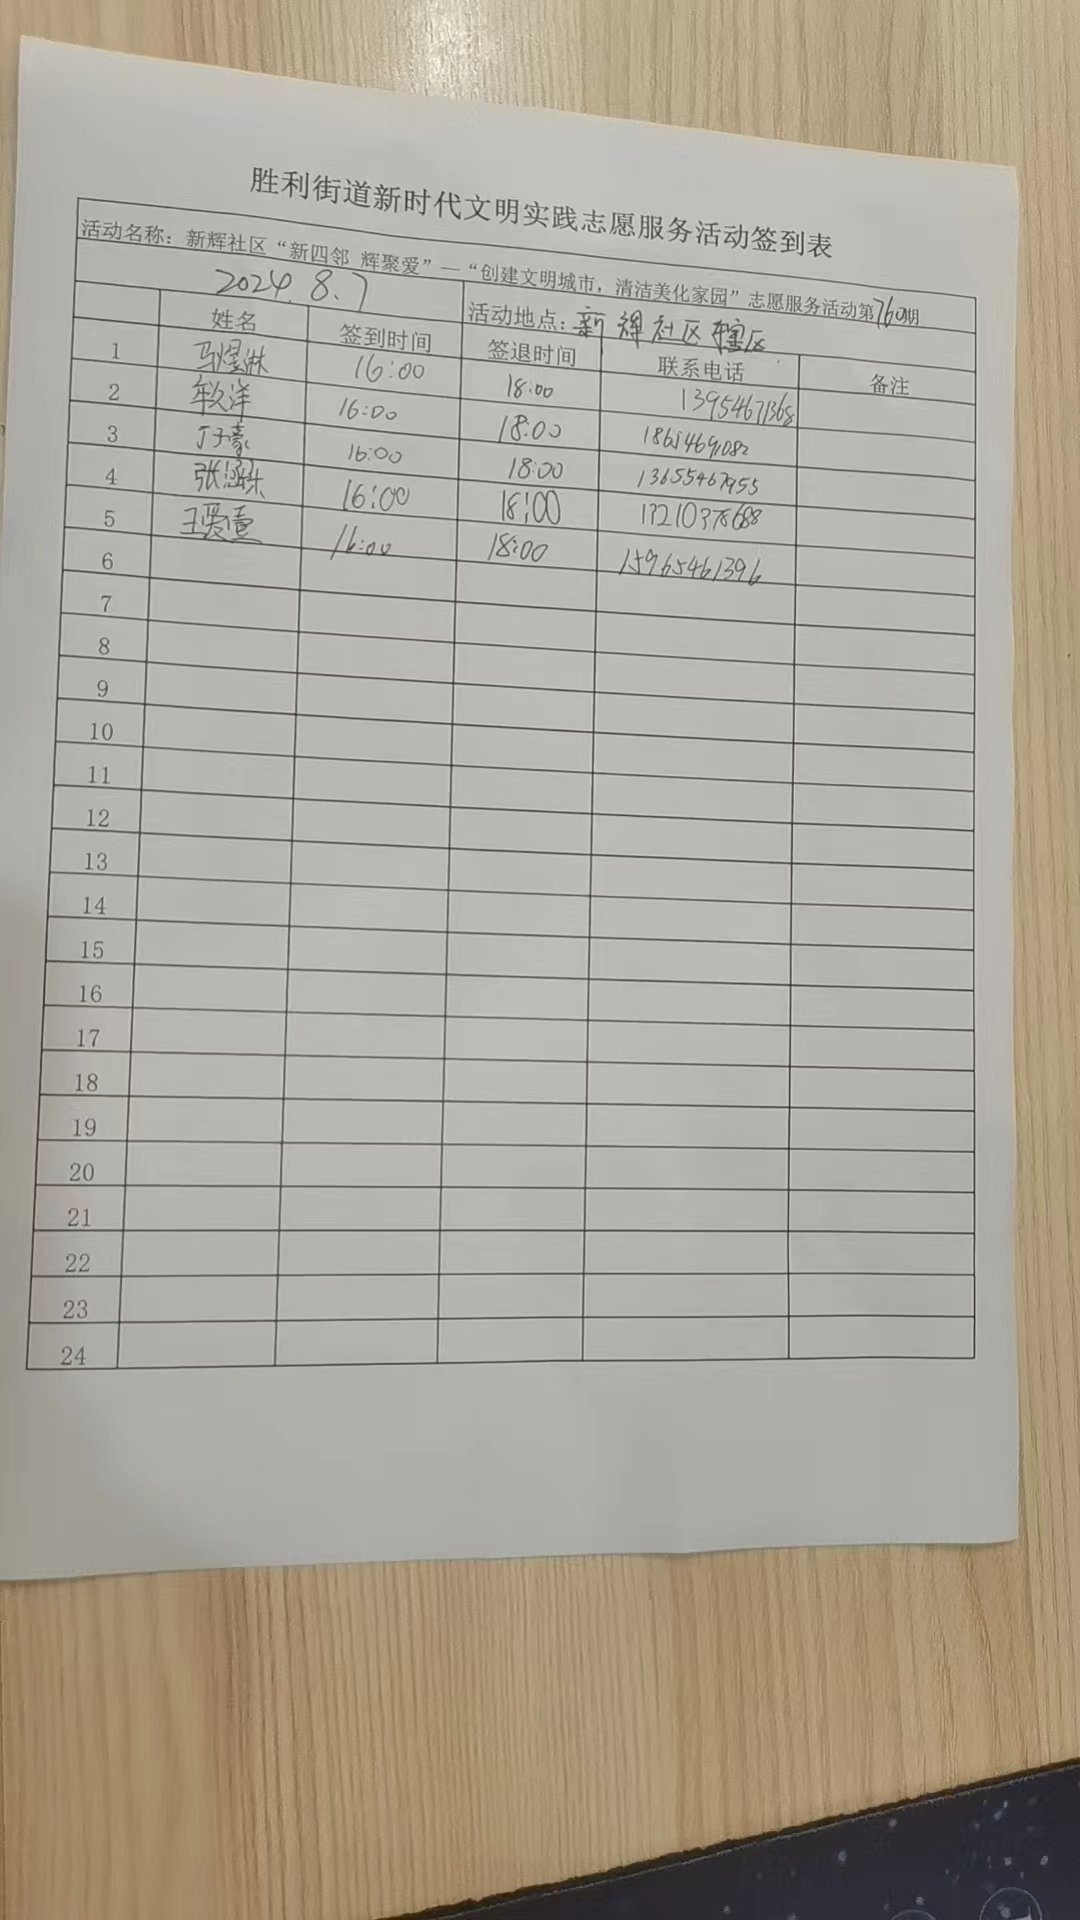 胜利街道新时代文明实践志愿服务活动签到表
活动名称：新辉社区“新四邻 辉聚爱”—“创建文明城市，清洁美化家园”志愿服务活动第760期
2024.8.7 活动地点：新辉社区辖区
姓名 签到时间 签退时间 联系电话 备注
1 马煜淋 16:00 18:00 13954671368
2 牟久洋 16:00 18:00
3 丁子豪 16:00 18:00 13655467955
4 张 16:00 18:00 13210378688
5 王爱 16:00 18:00 15965461396
6
7
8
9
10
11
12
13
14
15
16
17
18
19
20
21
22
23
24